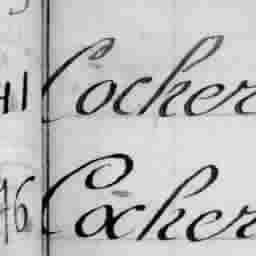 41 Cocker
46 Cocker